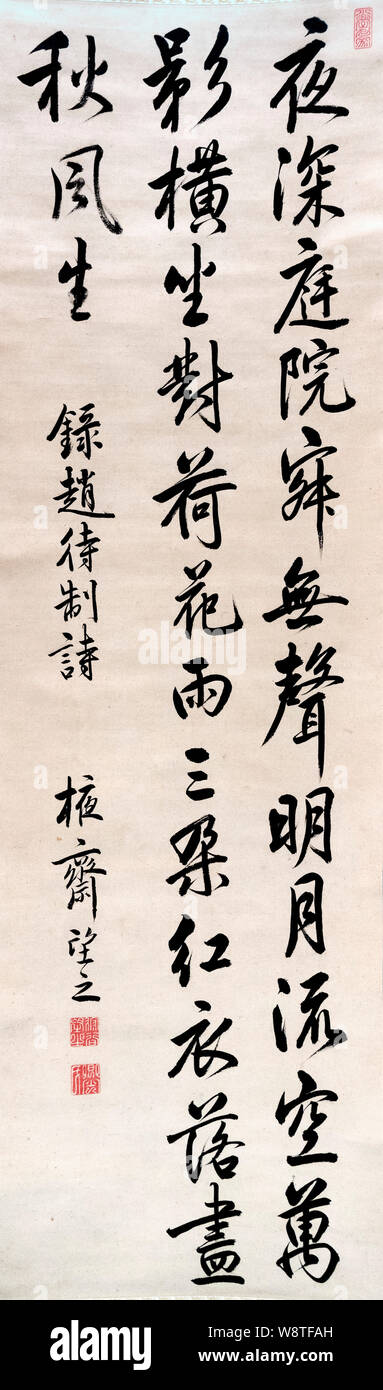 夜深庭院寂無聲明月流空萬
影橫坐對荷花兩三朵紅衣落盡
秋風生
錄趙待制詩
棭齋望之
alamy
alamy
Image ID: W8TFAH
www.alamy.com